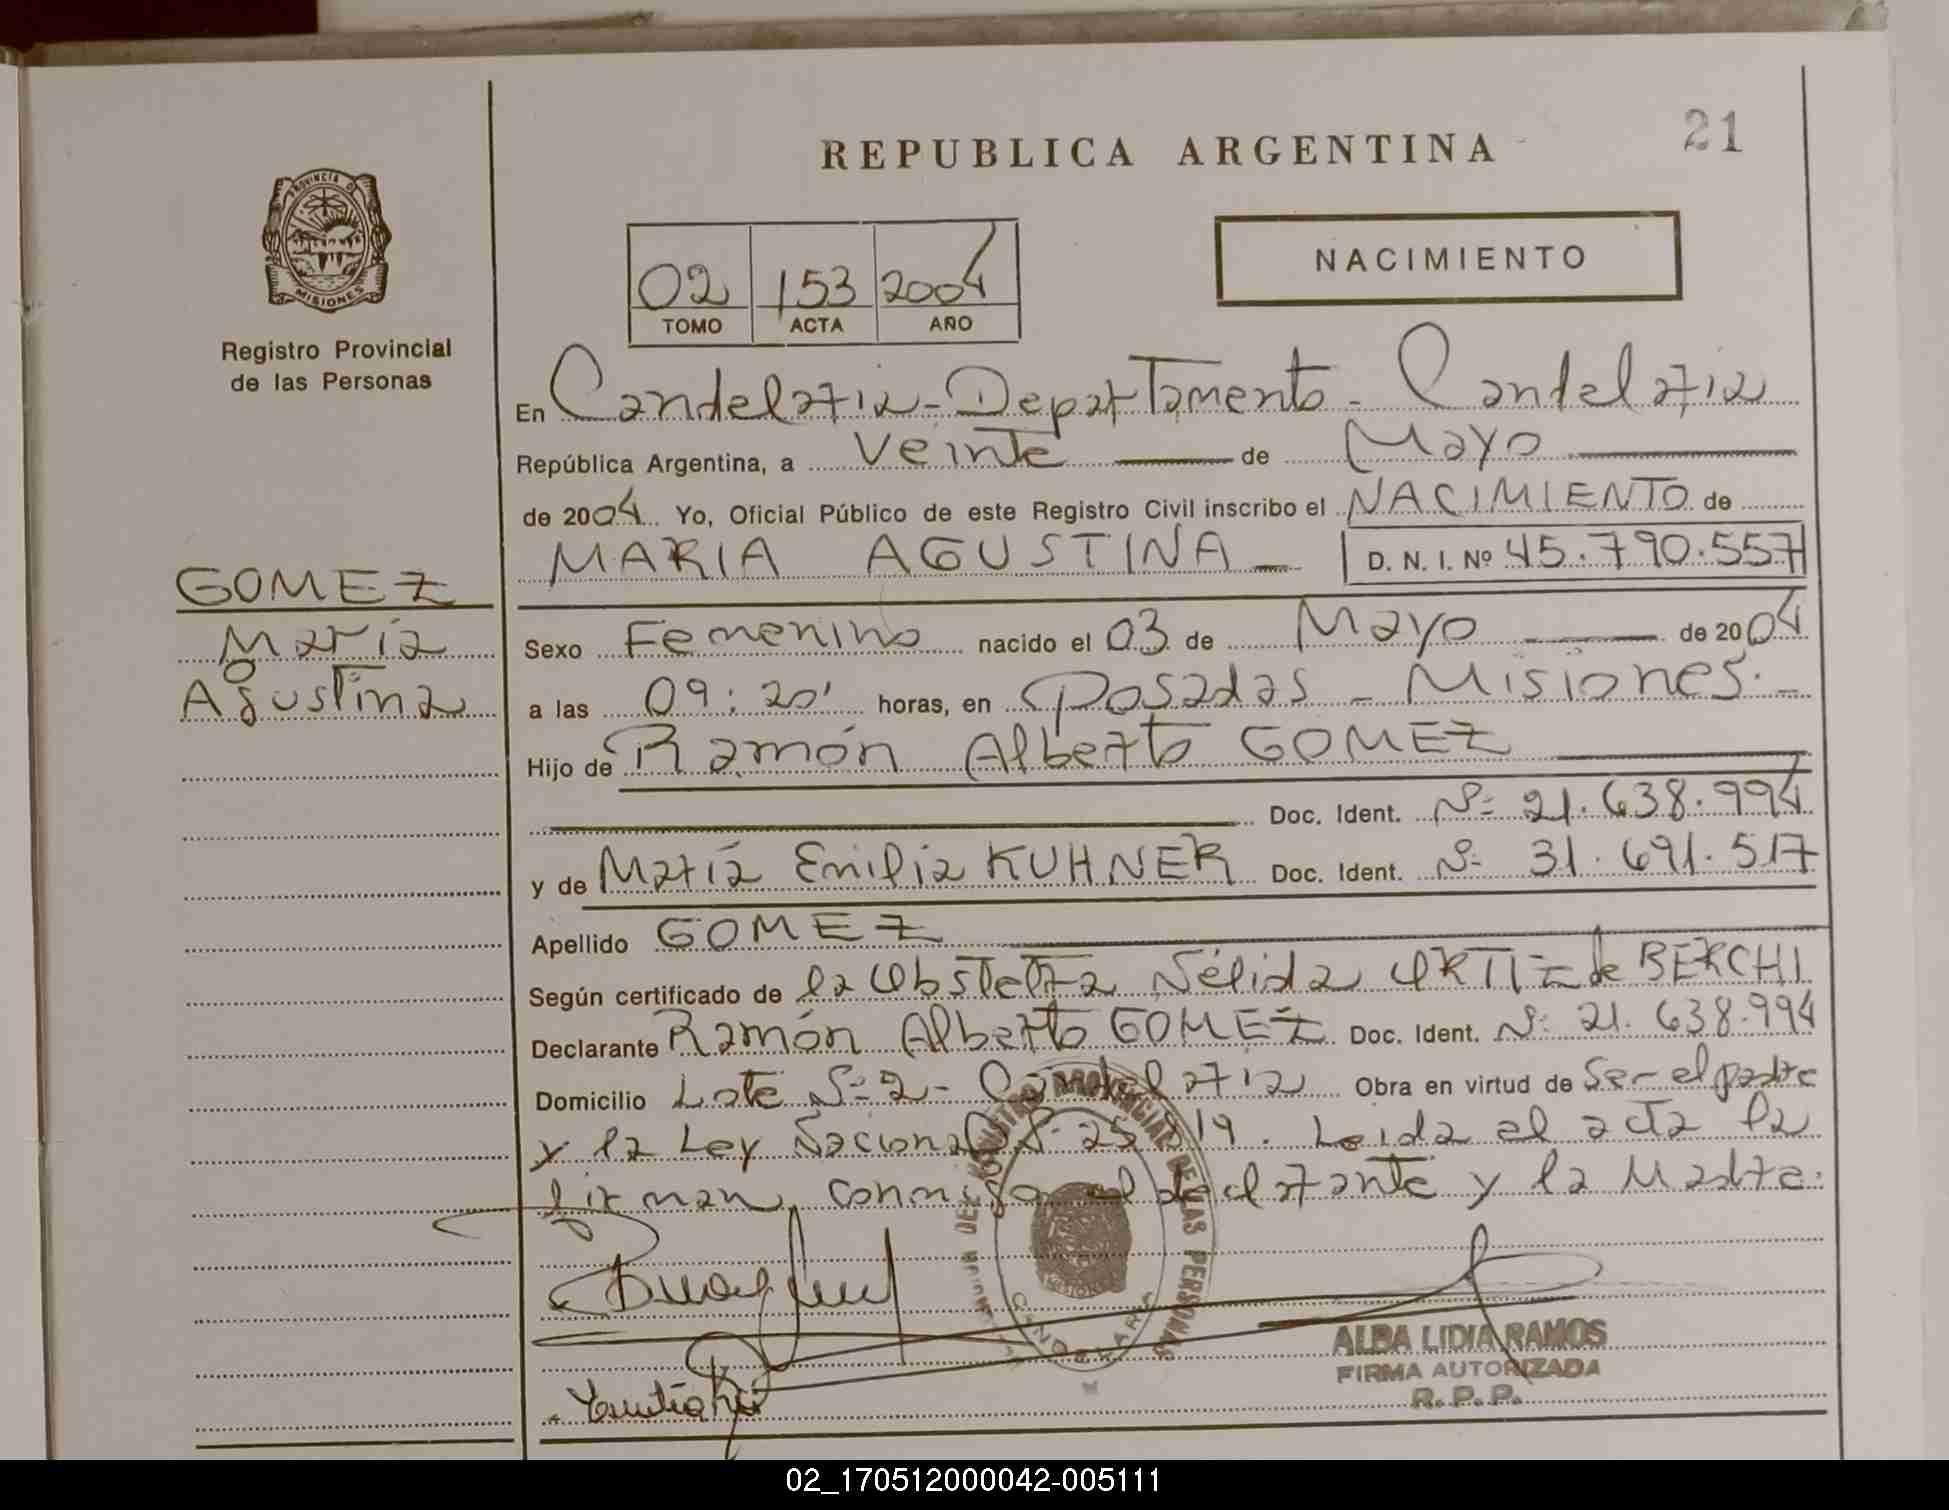 21
REPUBLICA ARGENTINA
PROVINCIA DE
MISIONES
Registro Provincial
de las Personas
02 153 2004
TOMO ACTA AÑO
NACIMIENTO
En Candelaria - Departamento - Candelaria
República Argentina, a Veinte de Mayo
de 2004 Yo, Oficial Público de este Registro Civil inscribo el NACIMIENTO de
MARIA AGUSTINA D. N. I. Nº 45.790.557
GOMEZ
María
Agustina
Sexo Femenino nacido el 03 de Mayo de 2004
a las 09:20' horas, en Posadas - Misiones.-
Hijo de Ramón Alberto GOMEZ
Doc. Ident. Nº 21.638.994
y de María Emilia KUHNER Doc. Ident. Nº 31.691.517
Apellido GOMEZ
Según certificado de la Obstetra Nélida ORTIZ de BERCHI
Declarante Ramón Alberto GOMEZ Doc. Ident. Nº 21.638.994
Domicilio Lote Nº 2 - Candelaria Obra en virtud de Ser el padre
y la Ley Nacional Nº 25.819. Leida el acta la
firman conmigo el declarante y la Madre.
REGISTRO PROVINCIAL DE LAS PERSONAS
MISIONES
CANDELARIA
ALBA LIDIA RAMOS
FIRMA AUTORIZADA
R.P.P.
02_170512000042-005111